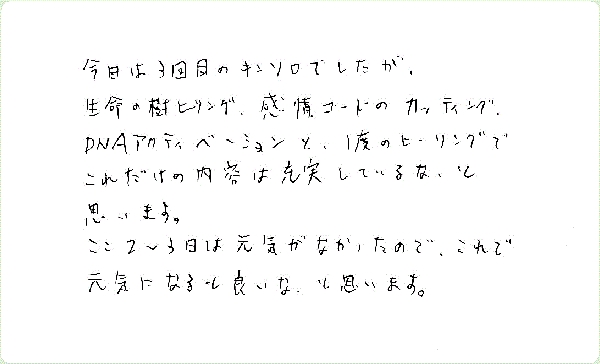 今日は3回目のキンソロでしたが、
生命の樹ヒーリング、感情コードのカッティング、
DNAアクティベーションと、1度のヒーリングで
これだけの内容は充実しているな、と
思います。
ここ2〜3日は元気がなかったので、これで
元気になると良いな、と思います。